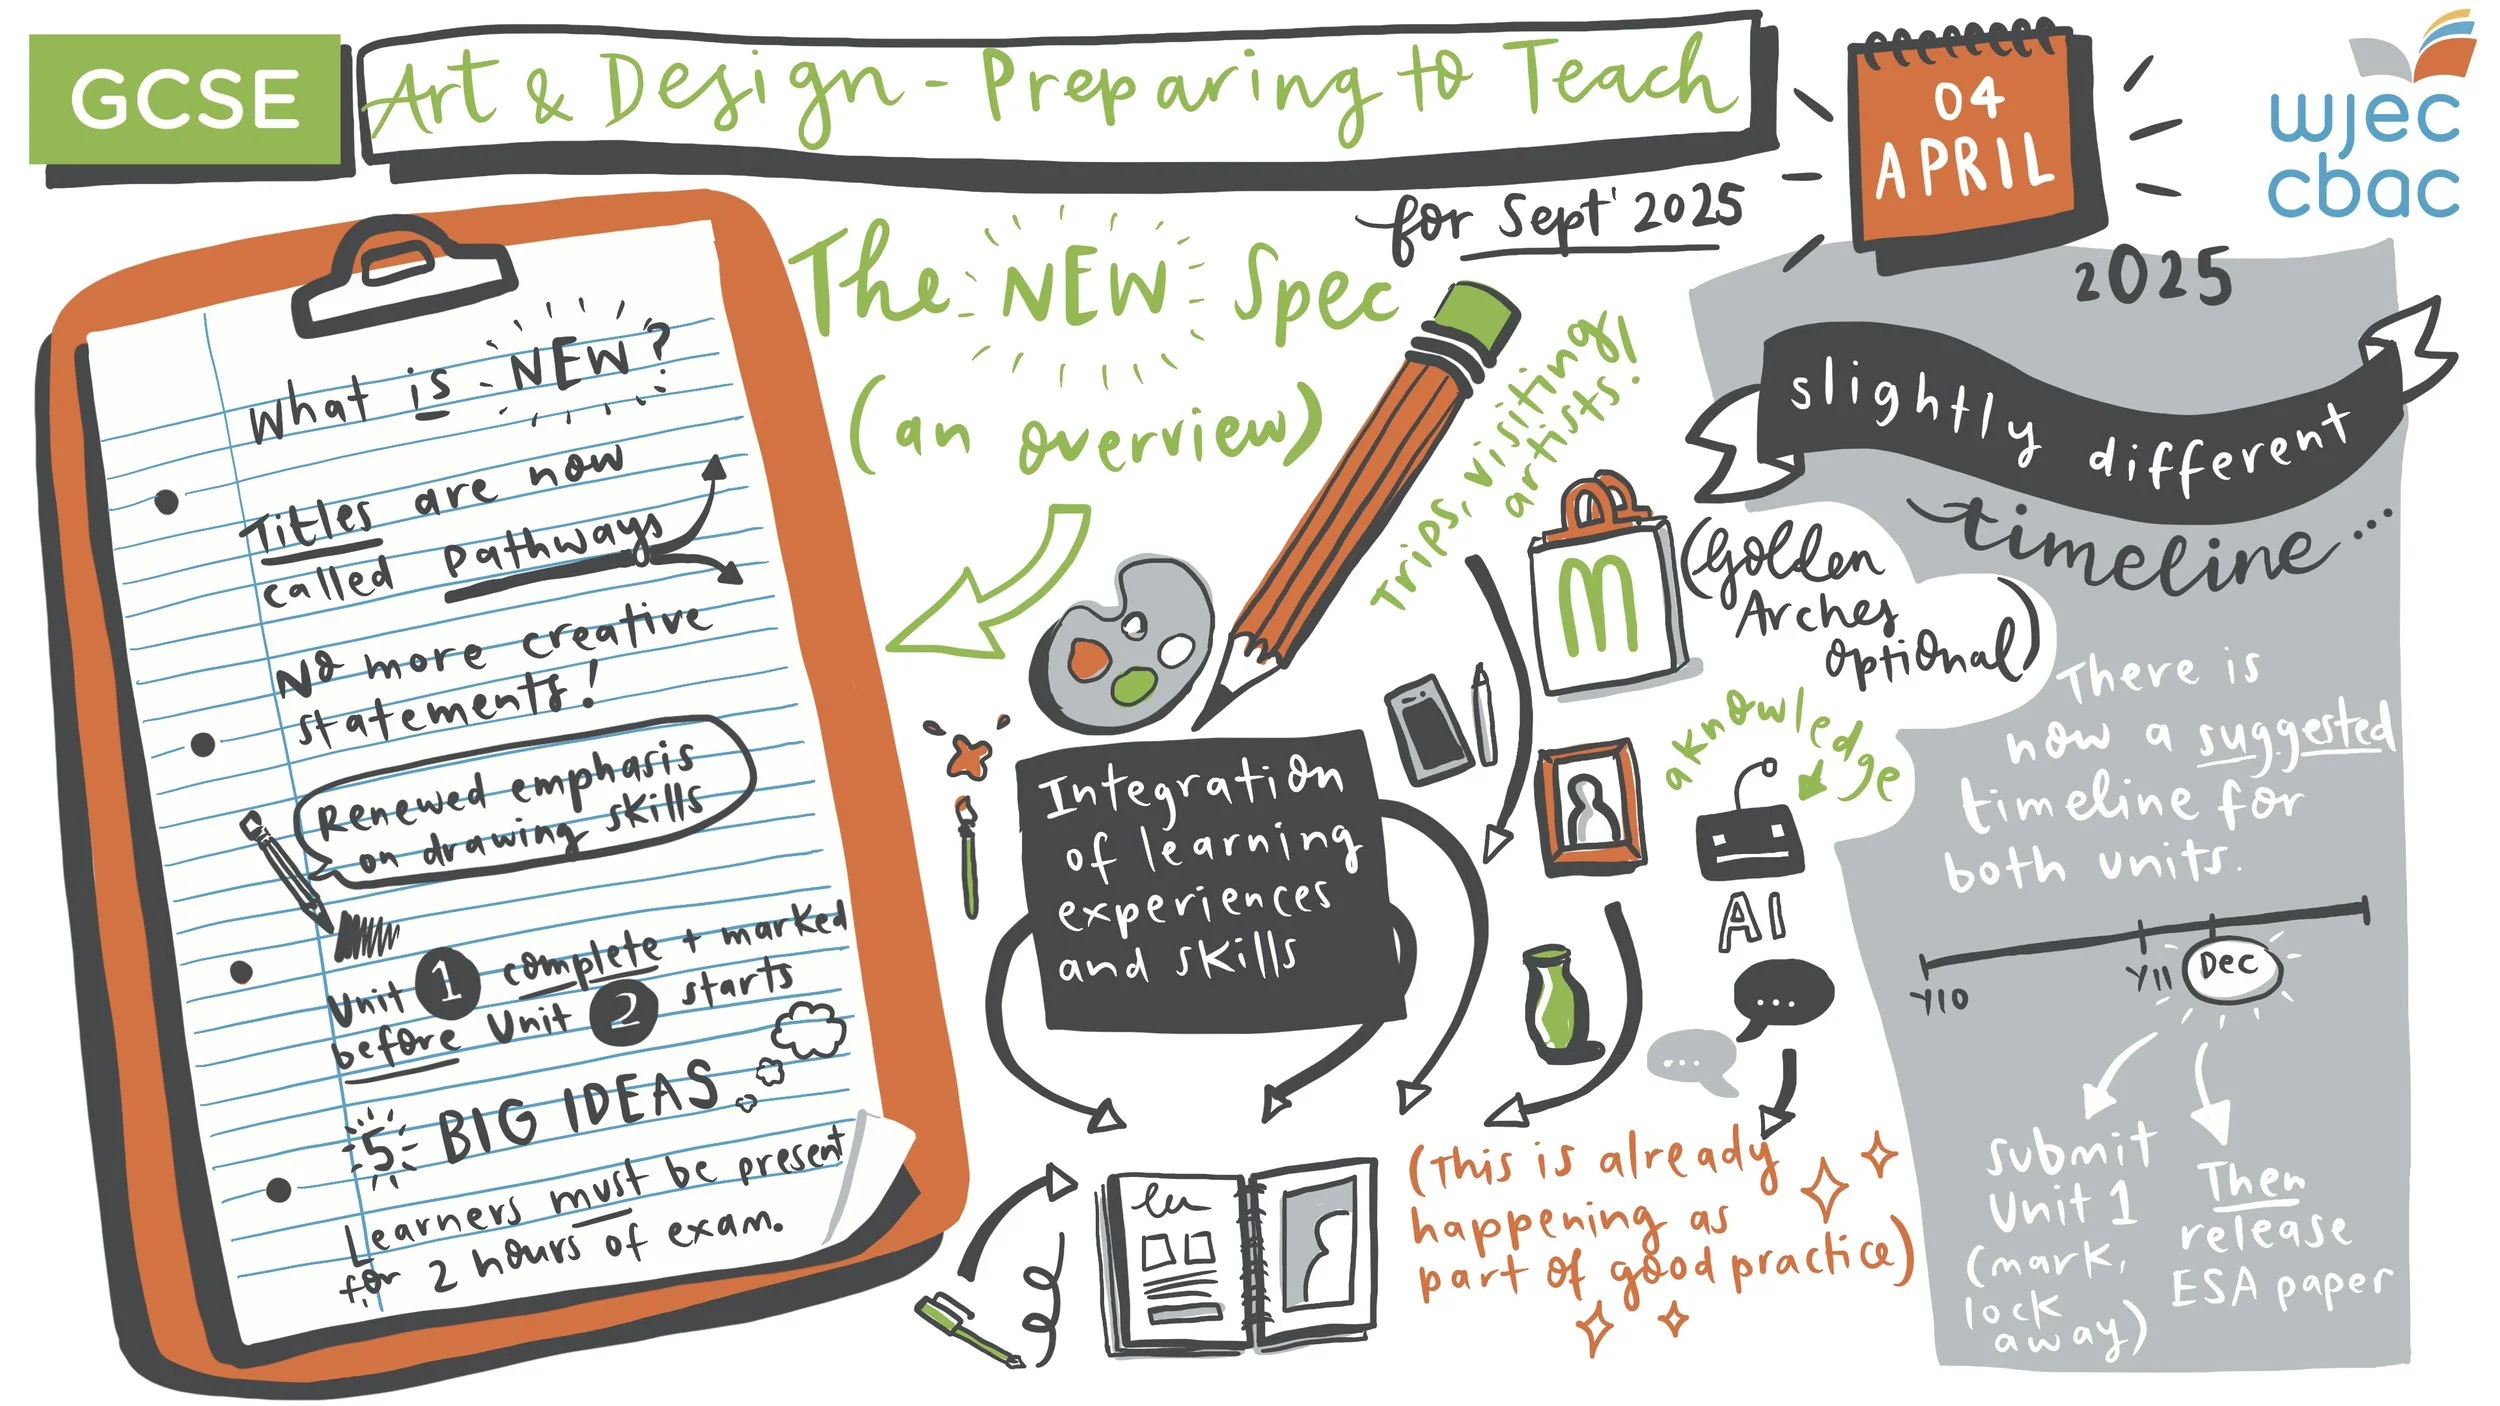 GCSE
Art & Design - Preparing to Teach
for Sept' 2025
04
APRIL
2025
wjec
cbac
The NEW Spec
(an overview)
What is NEW?
Titles are now
called Pathways
No more creative
statements!
Renewed emphasis
on drawing skills
Unit 1 complete + marked
before Unit 2 starts
5 BIG IDEAS
Learners must be present
for 2 hours of exam.
Integration
of learning
experiences
and skills
Trips, visiting
artists!
m
(Golden
Arches
optional)
aknowledge
AI
(This is already
happening as
part of good practice)
slightly different
timeline...
There is
now a suggested
timeline for
both units.
Y10
Y11
Dec
Submit
Unit 1
(mark,
lock
away)
Then
release
ESA paper